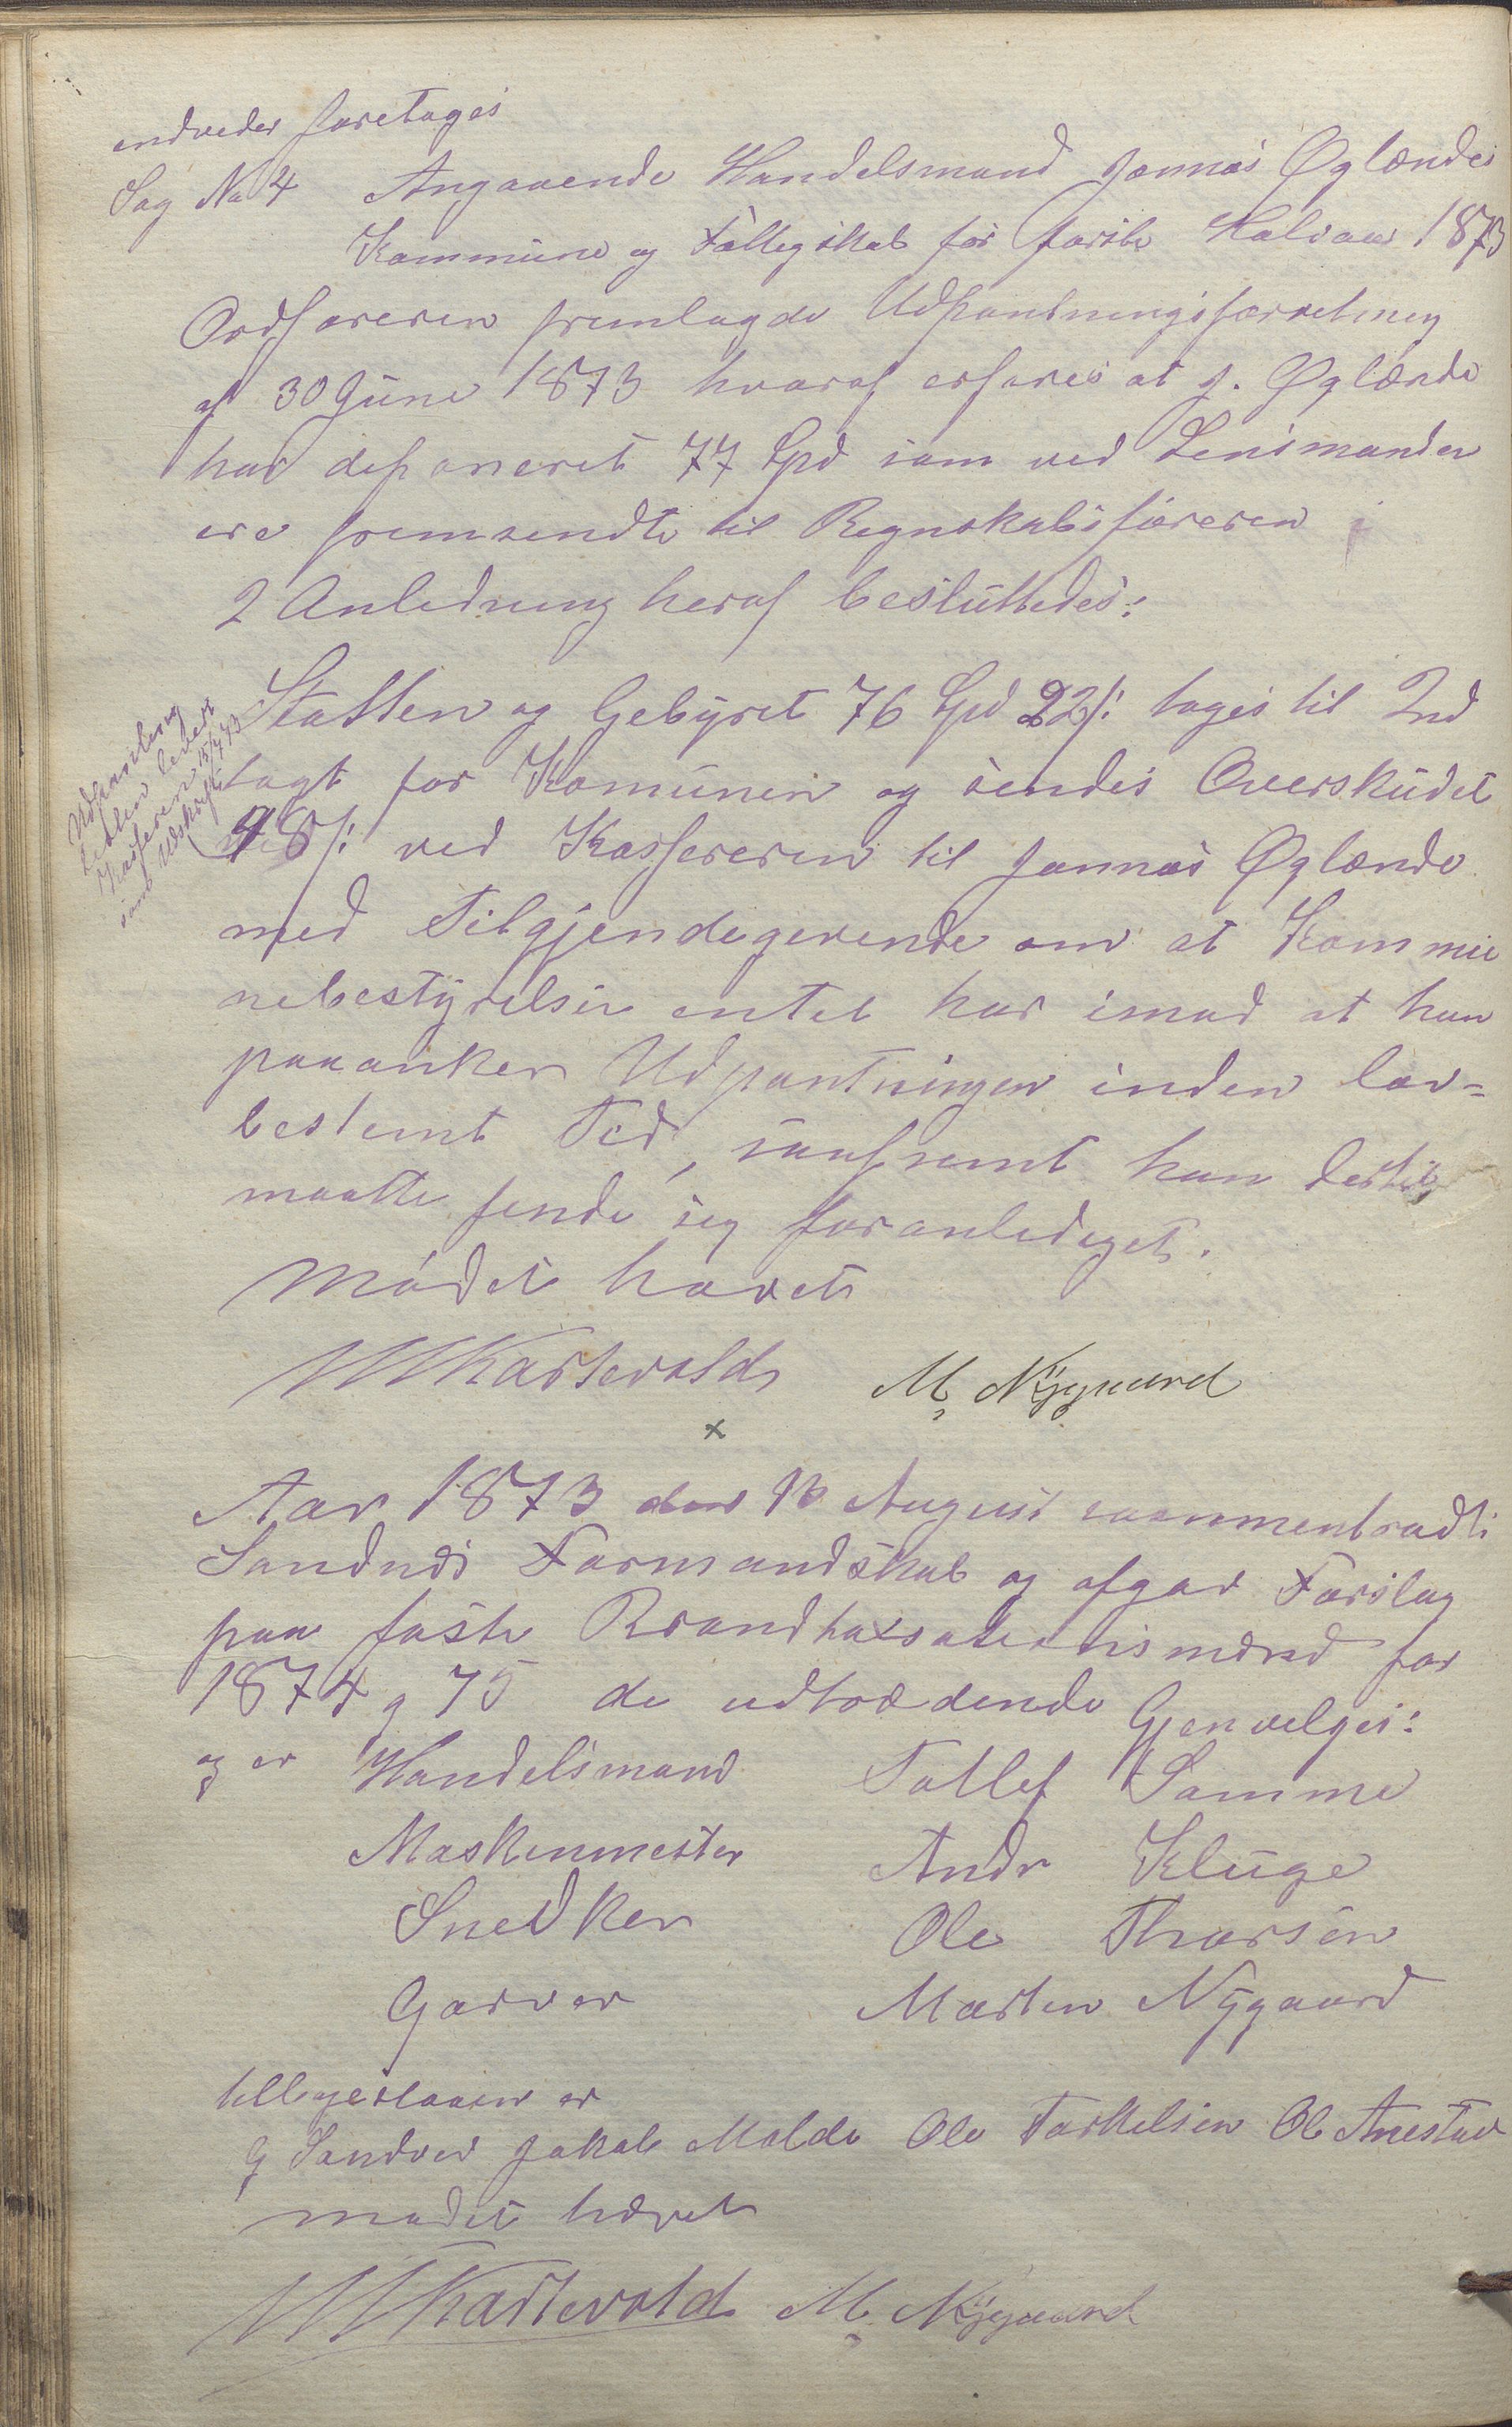 endveder foretages
Sag No 4 Angaaende Handelsmand Jonnas Øglændes
Kommune og Fattigskat for første Halvaar 1873
Ordføreren fremlagde Udpantningsforretning
af 30 Juni 1873 hvoraf erfares at J. Øglænde
har deponeret 77 Spd som ved Lensmanden
ere fremsendte til Regnskabsføreren
I Anledning heraf besluttedes:
Skatten og Gebyret 76 Spd 22 /: tages til Ind
tagt for Komunen og sendes Overskudet
98 /: ved Kassereren til Jonnas Øglænde
med Tilkjendegivende om at Kommu
nebestyrelsen entet har imod at han
paaanker Udpantningen inden lov=
bestemt Tid, saafremt han dertil
maatte finde sig foranlediget.
Mødet hævet
Udpantning
sedlen levert
Kasseren 15/7 73
samt Udskrift
W Kartevold M. Nygaard
x
Aar 1873 den 16 August sammentraadte
Sandnes Formandskab og afgav Forslag
paa faste Brandtaxsationsmænd for
1874 og 75 de udtrædende Gjenvelges:
og er Handelsmand Tollef Somme
Maskinmester Andr Kluge
Snedker Ole Thorsen
Garver Morten Nygaard
tillige er
G Sandved Jakob Molde Ole Torkelsen Ole Anestad
mødet hævet
W Kartevold M. Nygaard